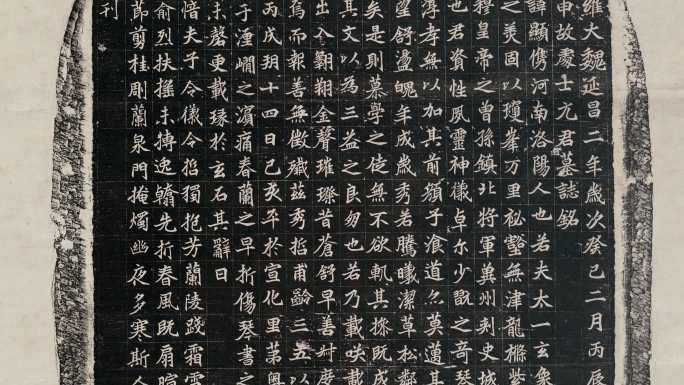 維大魏延昌二年歲次癸巳二月丙辰
申故處士元君墓誌銘
諱顯儁河南洛陽人也若夫太一玄象
之美固以瓊峯万里秘壑無津龍樔紫
穆皇帝之曾孫鎮北將軍冀州刾史城
也君資性夙靈神儀卓尔少翫之奇琴
淳孝無以加其前顏子飡道亦莫邁其
望舒盪魄年成歲秀若騰曦潔草松鄰
矣是則慕學之徒無不欲軌其操既成
其文以為三益之良朋也若乃載咲載
出入翱翔金聲璀璨昔蒼舒早善
焉而報善無徵殲茲秀哲甫齡三五以
丙戌朔十四日己亥卒於宣化里第粤
于瀍澗之濱痛春蘭之早折傷琴書之
未磬更載琢於玄石其辭曰
愔夫子令儀令哲獨挹芳蘭陵踐霜雪
俞烈扶搖未搏逸翰先折春風既扇暄
莭剪桂彫蘭泉門掩燭幽夜多寒斯人
刊